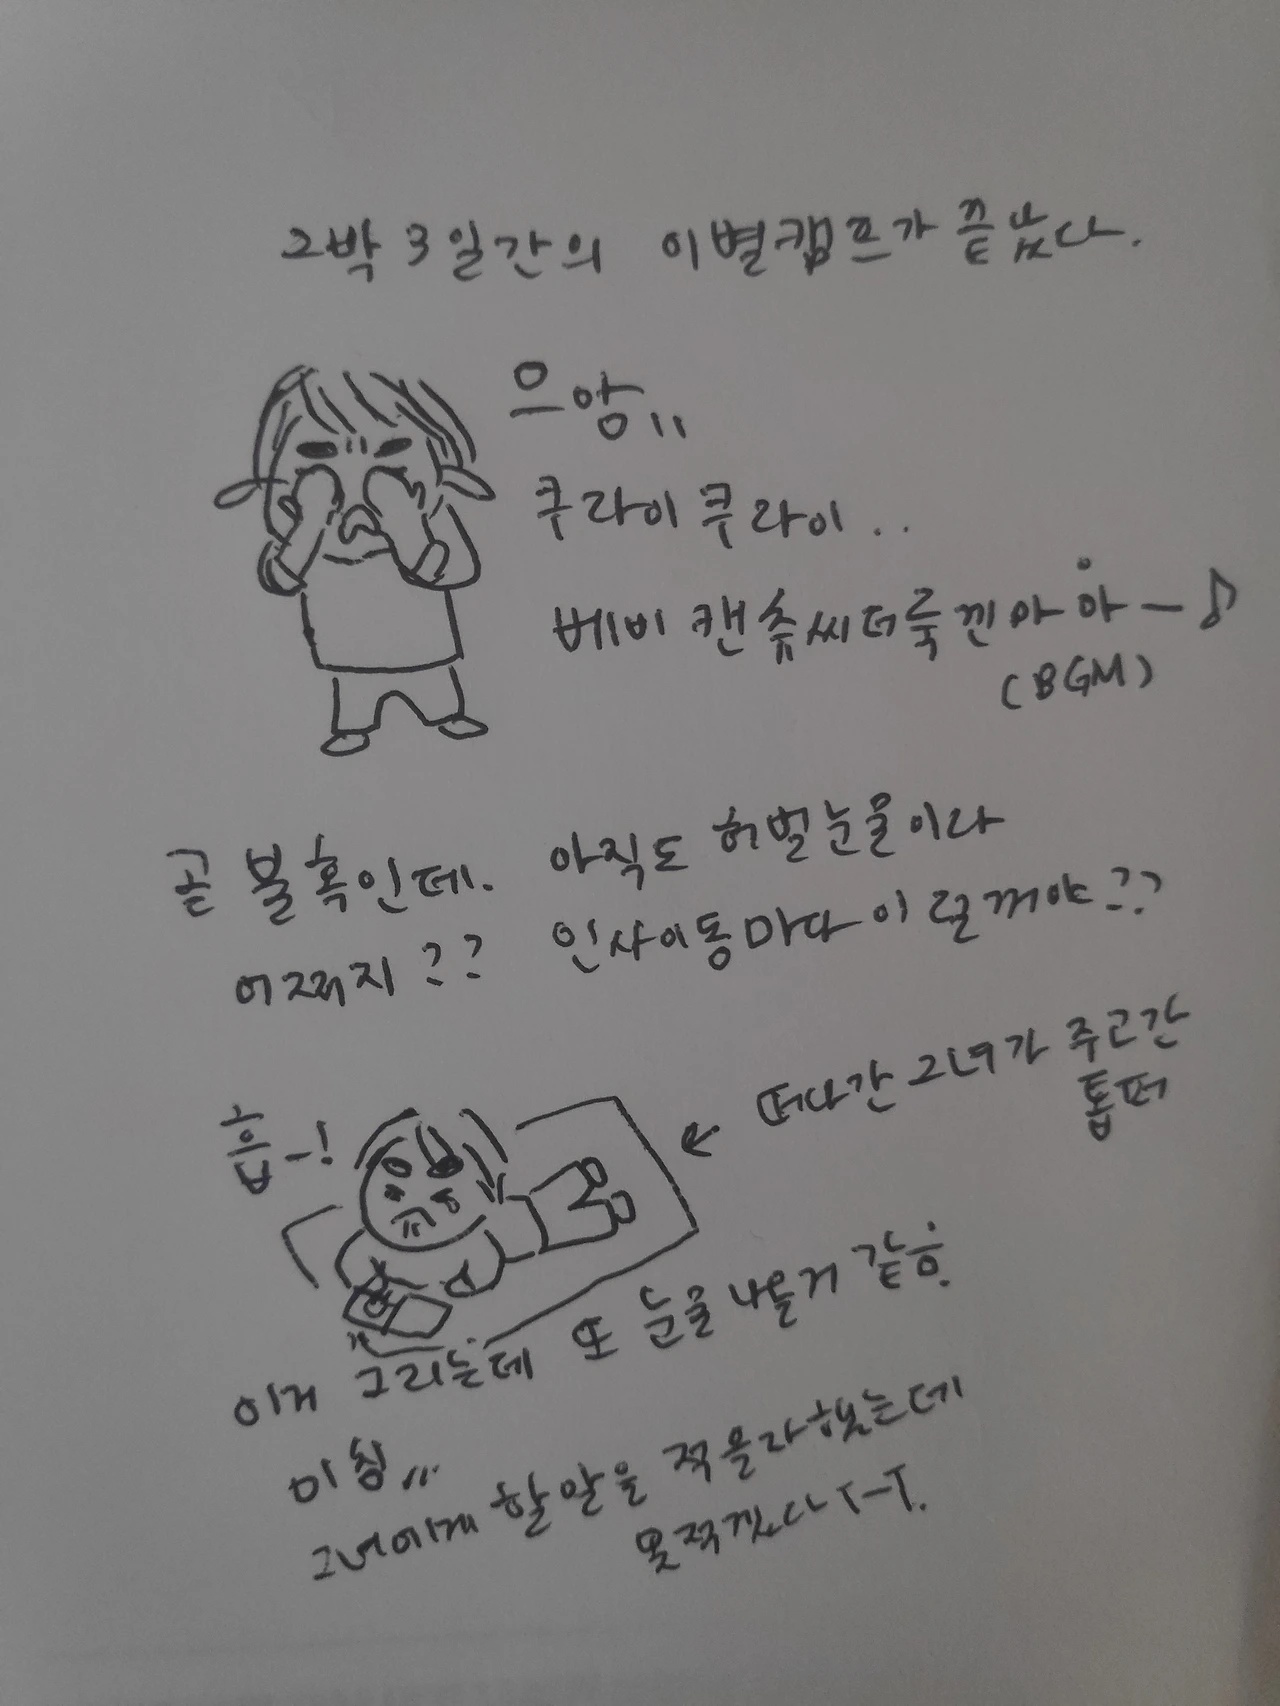 2박 3일간의 이별캠프가 끝났다.
으앙,,
쿠라이쿠라이..
베비 캔츄씨더룩낀마아ー♪
(BGM)
곧 불혹인데. 아직도 허벌눈물이라
어쩌지?? 인사이동마다 이럴꺼야??
흡-!
← 떠나간 그녀가 주고간
톱퍼
이거 그리는데 또 눈물 나올거 같흐.
미칭,,,
그녀에게 할말을 적을라했는데
못적겠다 T-T.